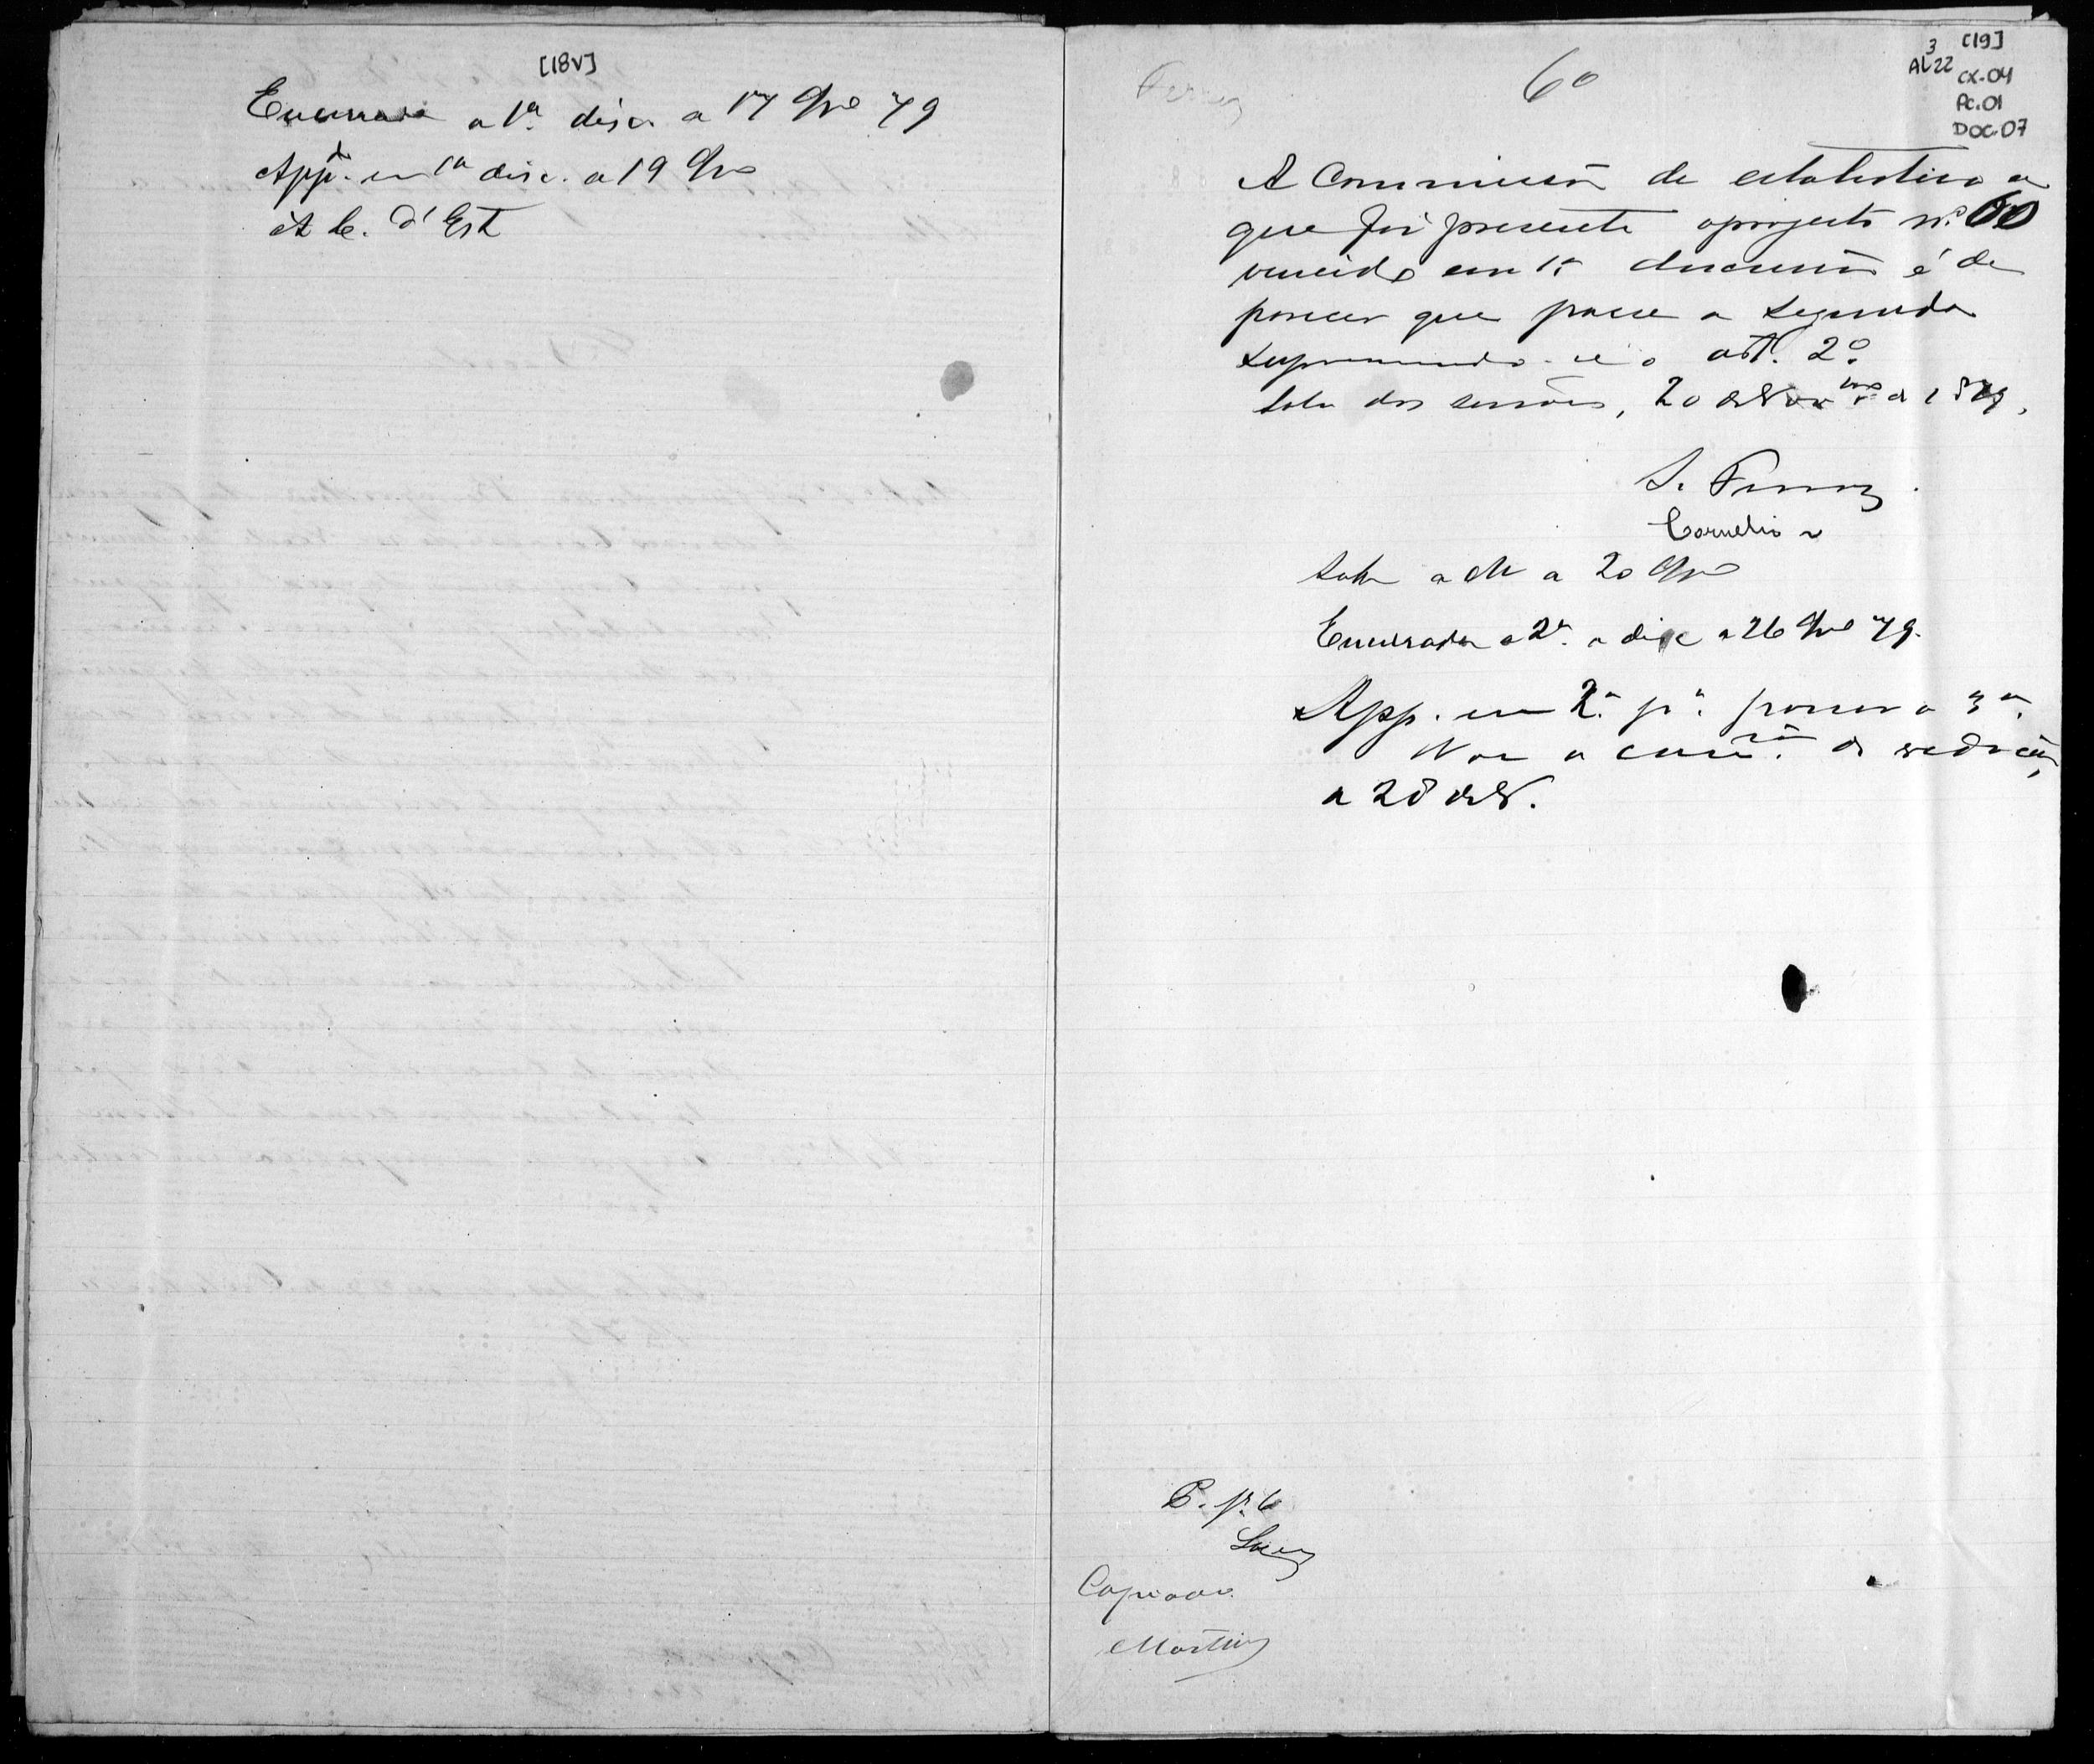 [18v]
Encerrada a 1ª disc. a 17 9bro 79
Appda. em 1ª disc. a 19 9bro
Á C. d'Est
Ferraz
60
3 [19]
AL22 CX.04
PC.01
DOC.07
A Commissão de estatistica a
que foi presente o projecto nº 60
vencido em 1ª discussão é de
parecer que passe a segunda
supprimindo-se o art. 2º.
Sala das sessões, 20 de Novbro de 1879.
S. Ferraz.
Cornelio
Sobre a M a 20 9bro
Encerrada a 2ª a disc a 26 9bro 79.
App. em 2ª pª. passar a 3ª.
a commão. de redacção,
a 28 de N.
P. p. C
Copiado.
Martins